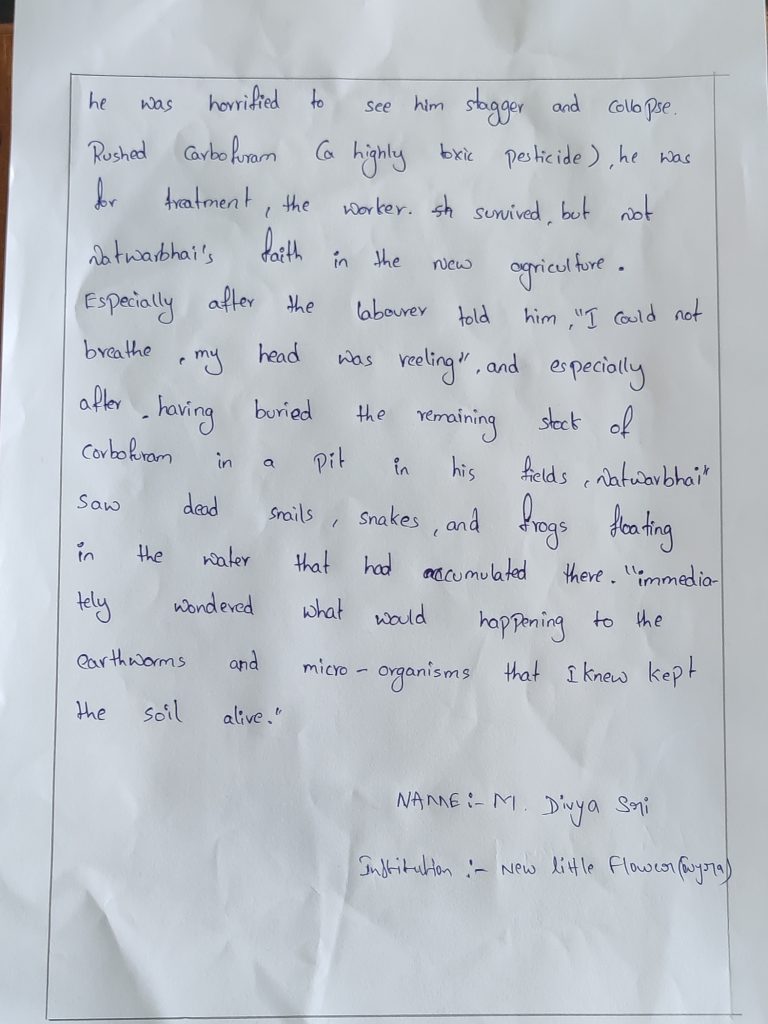 he was horrified to see him stagger and collapse.
Rushed Carbofuram (a highly toxic pesticide), he was
for treatment, the worker. survived, but not
Natwarbhai's faith in the new agriculture.
Especially after the labourer told him, "I could not
breathe, my head was reeling", and especially
after having buried the remaining stock of
Corbofuram in a pit in his fields, Natwarbhai"
saw dead snails, snakes, and frogs floating
in the water that had accumulated there. "immedia-
tely wondered what would happening to the
earthworms and micro-organisms that I knew kept
the soil alive."
NAME :- M. Divya Sri
Institution :- New little Flower